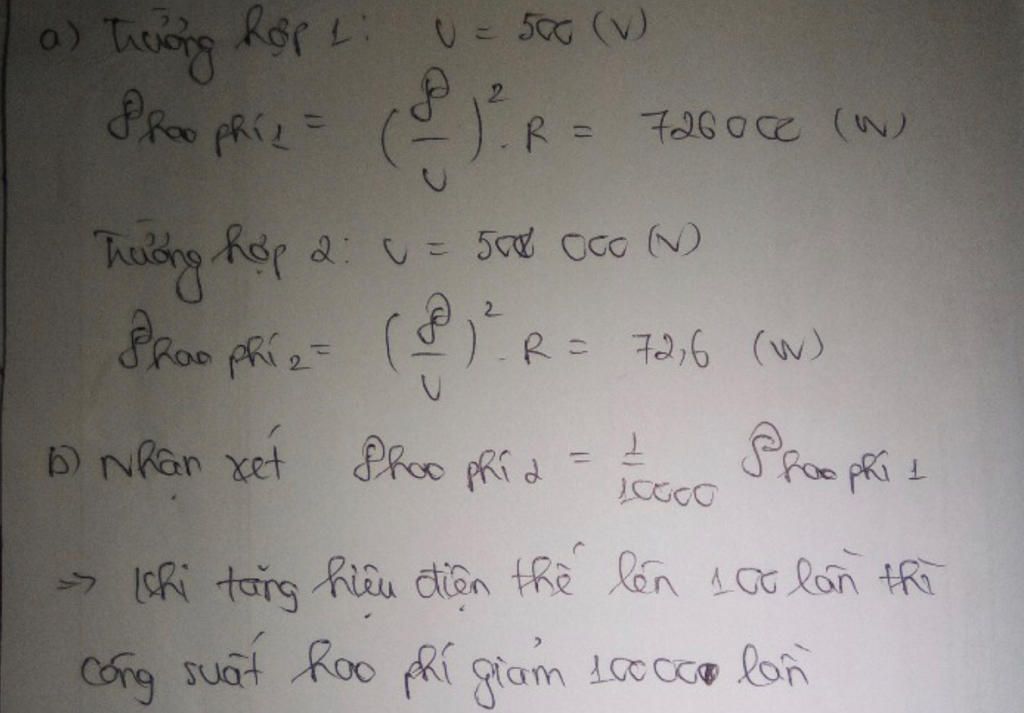 a) Trường hợp 1: U = 500 (V)
𝒫hao phí1 = (𝒫/U)². R = 726000 (W)
Trường hợp 2: U = 500 000 (V)
𝒫hao phí2 = (𝒫/U)². R = 72,6 (W)
b) Nhận xét 𝒫hao phí 2 = 1/10000 𝒫hao phí 1
=> Khi tăng hiệu điện thế lên 100 lần thì
công suất hao phí giảm 10000 lần